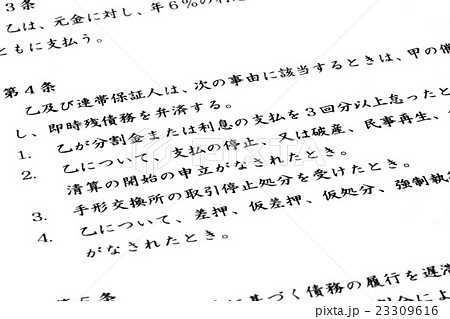 3条
乙は、元金に対し、年6%の利
ともに支払う。
第4条
乙及び連帯保証人は、次の事由に該当するときは、甲の催
し、即時残債務を弁済する。
1. 乙が分割金または利息の支払を3回分以上怠ったと
2. 乙について、支払の停止、又は破産、民事再生、
清算の開始の申立がなされたとき。
3. 手形交換所の取引停止処分を受けたとき。
4. 乙について、差押、仮差押、仮処分、強制執
がなされたとき。
第5条
基づく債務の履行を遅滞
pixta
pixta.jp - 23309616